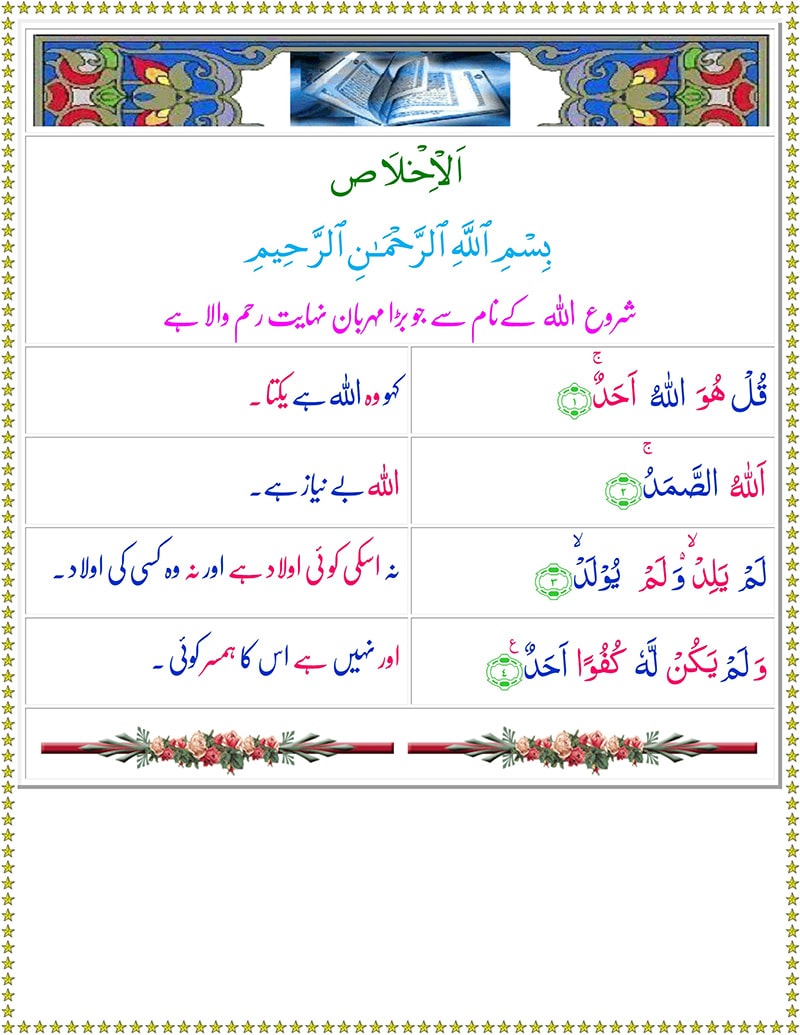 اَلْاِخْلَاص
بِسْمِ ٱللَّهِ ٱلرَّحْمَـٰنِ ٱلرَّحِيمِ
شروع اللہ کے نام سے جو بڑا مہربان نہایت رحم والا ہے
قُلْ هُوَ اللّٰهُ اَحَدٌۚ ﴿۱﴾
کہو وہ اللہ ہے یکتا۔
اَللّٰهُ الصَّمَدُۚ ﴿۲﴾
اللہ بے نیاز ہے۔
لَمْ يَلِدْ ۙ وَ لَمْ يُوْلَدْۙ ﴿۳﴾
نہ اسکی کوئی اولاد ہے اور نہ وہ کسی کی اولاد۔
وَ لَمْ يَكُنْ لَّهٗ كُفُوًا اَحَدٌ ﴿٤﴾ ع
اور نہیں ہے اس کا ہمسر کوئی۔